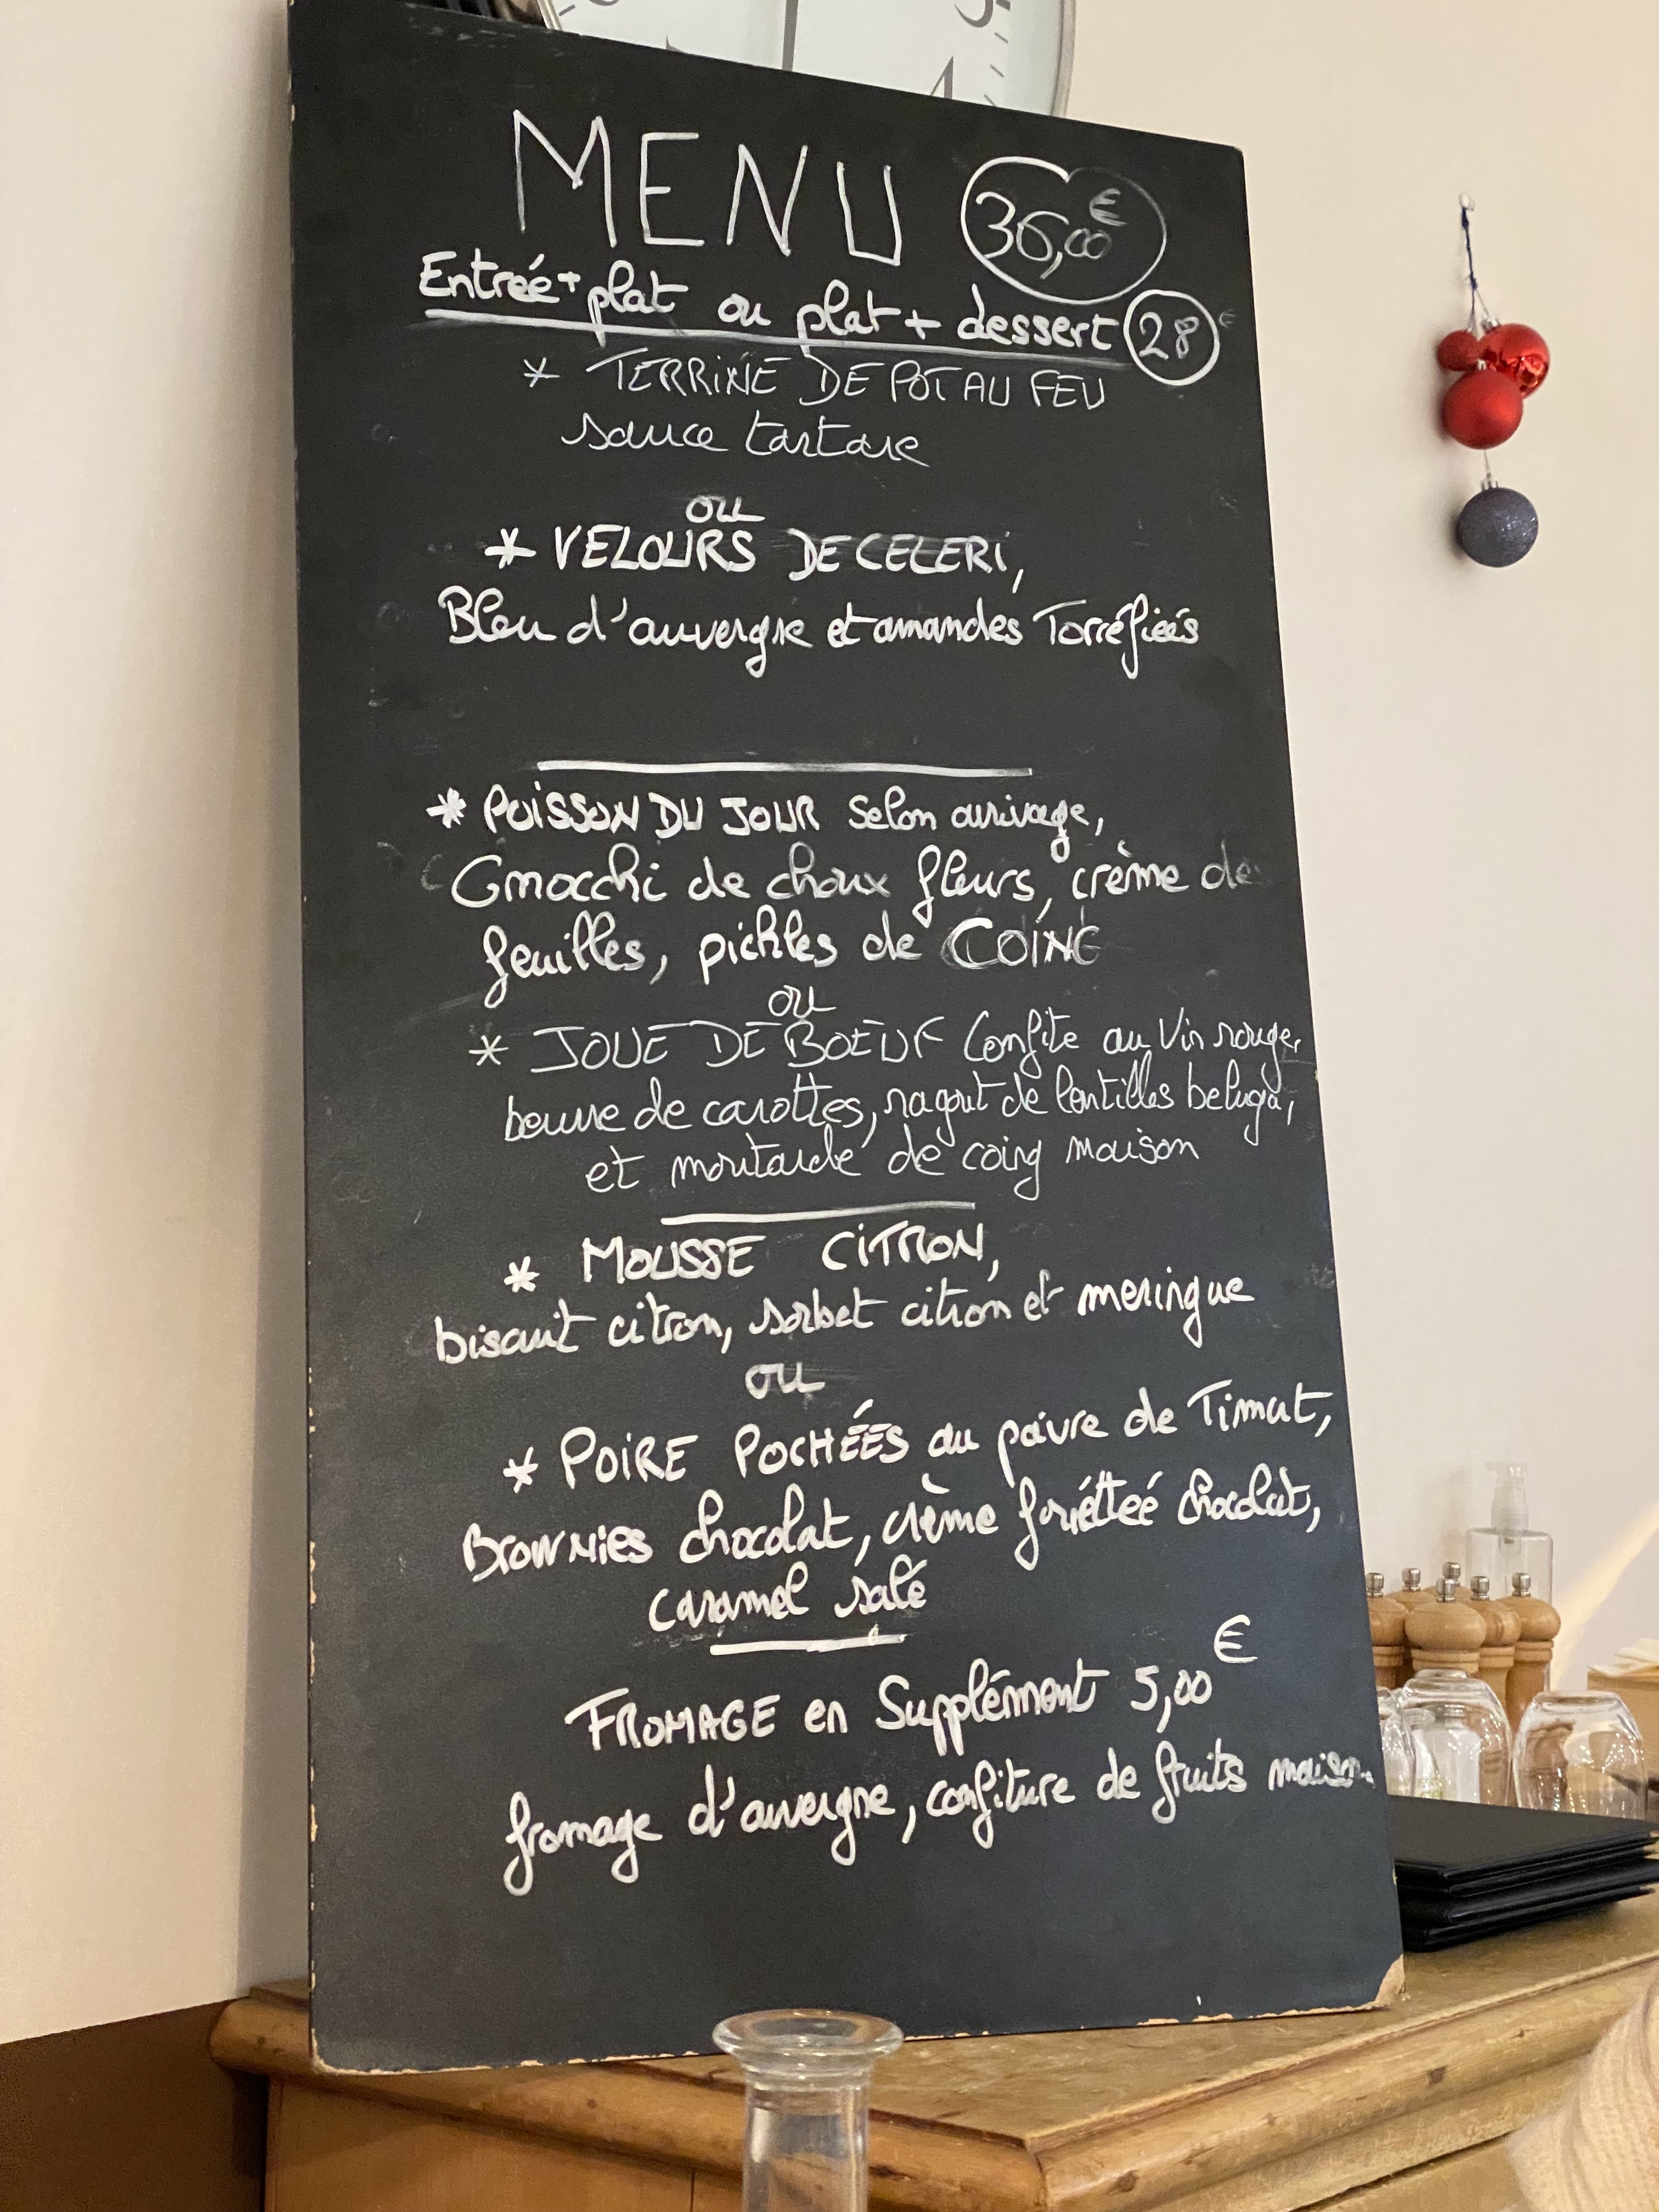 MENU 36,00€
Entréé + plat ou plat + dessert 28€
* TERRINE DE POT AU FEU
sauce tartare
ou
* VELOURS DE CELERI,
Bleu d'auvergne et amandes Torréfiéés
* POISSON DU JOUR selon arrivage,
Gnocchi de choux fleurs, crème de
feuilles, pickles de COING
ou
* JOUE DE BOEUF Confite au Vin rouge,
beurre de carottes, ragout de lentilles beluga,
et moutarde de coing maison
* MOUSSE CITRON,
biscuit citron, sorbet citron et meringue
ou
* POIRE POCHÉÉS au poivre de Timut,
Brownies chocolat, crème fouéttéé chocolat,
caramel salé
FROMAGE en Supplément 5,00€
fromage d'auvergne, confiture de fruits maison